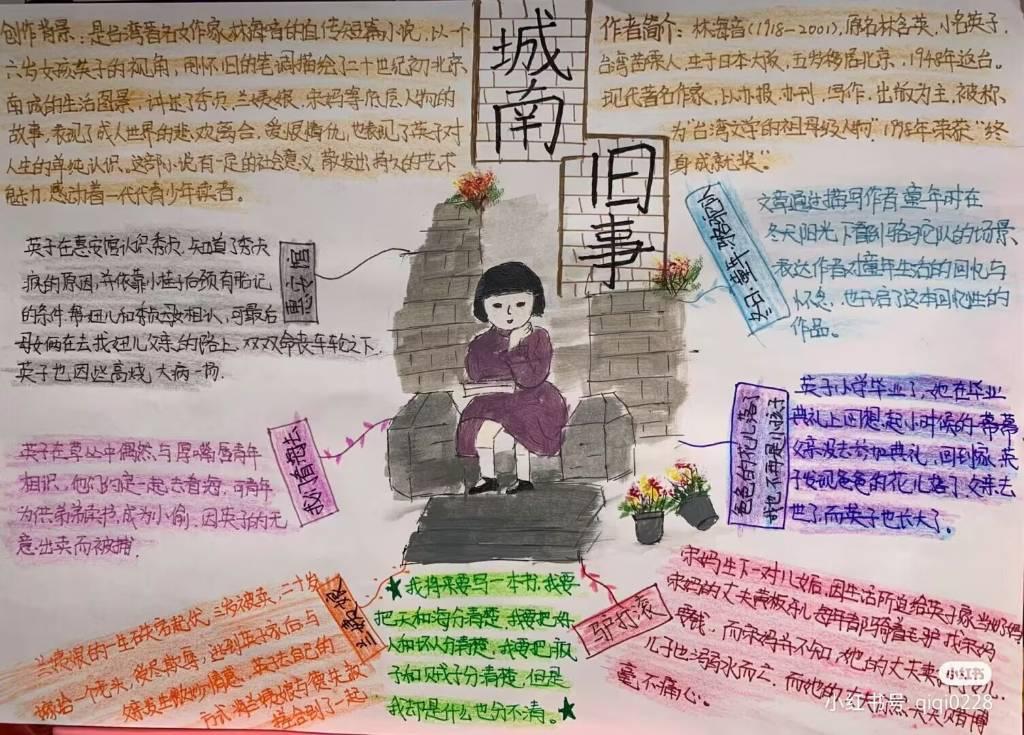 城南
旧事
创作背景：是台湾著名女作家林海音的自传短篇小说，以一个
六岁女孩英子的视角，用怀旧的笔调描绘了二十世纪初北京
南城的生活图景，讲述了秀贞，兰姨娘，宋妈等底层人物的
故事，表现了成人世界的悲欢离合，爱恨情仇，也表现了英子对
人生的单纯认识。这部小说有一定的社会意义，散发出持久的艺术
魅力，感动着一代代青少年读者。
作者简介：林海音(1918-2001)，原名林含英，小名英子，
台湾苗栗人，生于日本大阪，五岁移居北京，1948年返台。
现代著名作家，以办报，办刊，写作，出版为主，被称
为"台湾文学的祖母级人物"1998年荣获"终
身成就奖"
惠安馆
英子在惠安馆认识秀贞，知道了秀贞
疯的原因，并依靠小桂子后颈有胎记
的条件，帮妞儿和秀贞相认，可最后
母女俩在去找妞儿父亲的路上，双双命丧车轮之下，
英子也因此高烧，大病一场。
冬阳·童年·骆驼队
文章通过描写作者童年时在
冬天阳光下看到骆驼队的场景，
表达作者对童年生活的回忆与
怀念，也开启了这本回忆性的
作品。
我们看海去
英子在草丛中偶然与厚嘴唇青年
相识，他们约定一起去看海，可青年
为供弟弟读书，成为小偷，因英子的无
意出卖而被捕。
爸爸的花儿落了
我也不再是小孩子
英子小学毕业了，她在毕业
典礼上回想起小时候的
父亲没去参加典礼，回到家，英
子发现爸爸的花儿落了，父亲去
世了，而英子也长大了。
兰姨娘
兰姨娘的一生可
嫁给一个老头，受尽欺辱，逃到英子家后与
英子把自己的
我将来要写一本书，我要
把天和海分清楚，我要把好
人和坏人分清楚，我要把疯
子和贼子分清楚，但是
我却是什么也分不清。
驴打滚
宋妈生下一对儿女后，因生活所迫给英子家当奶妈
宋妈的丈夫黄板牙儿每年都骑着毛驴找宋妈
要钱，而宋妈并不知，她的丈夫
儿子也溺水而亡，而她的丈夫
毫不痛心。
小红书
小红书号 qigi0228